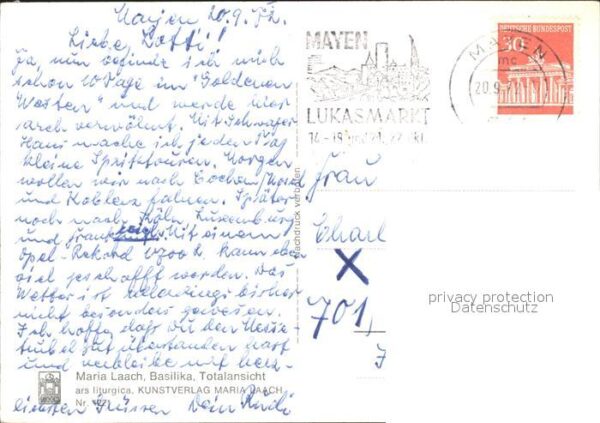 Mayen 20.9.72.
Liebe Lotti!
Ja, nun befinde ich mich
schon 10 Tage im "Goldenen
Westen" und werde hier
sehr verwöhnt. Mit Schwager
Hans mache ich jeden Tag
kleine Spritztouren. Morgen
wollen wir nach Cochem/Mosel
und Koblenz fahren. Später
noch nach Köln, Luxemburg
und Frankreich. Mit einem
Opel-Rekord 1700 ccm kann
viel geschafft werden. Das
Wetter ist allerdings bisher
nicht besonders gewesen.
Ich hoffe, daß Du den
gut überstanden hast
und verbleibe mit herz-
lichsten Grüssen Dein
Maria Laach, Basilika, Totalansicht
ars liturgica, KUNSTVERLAG MARIA LAACH
Nr.
Nachdruck verboten
MAYEN
LUKASMARKT
14.-19. 
DEUTSCHE BUNDESPOST
30
MAYEN
20.9.72
Frau
Charl
X
701,
privacy protection
Datenschutz